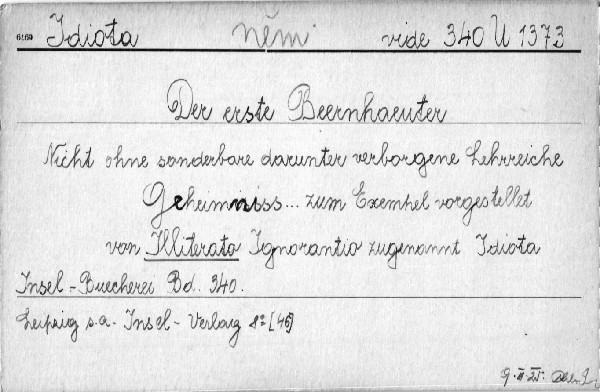 6169 Idiota němi vide 340 U 1373
Der erste Beernhaeuter
Nicht ohne sonderbare darunter verborgene Lehrreiche
Geheimniss... zum Exemhel vorgestellet
von Illiterato Ignorantio zugenannt Idiota
Insel-Buecherei Bd. 340.
Leipzig s.a. Insel-Verlarg 8º [46]
9. II. 25.